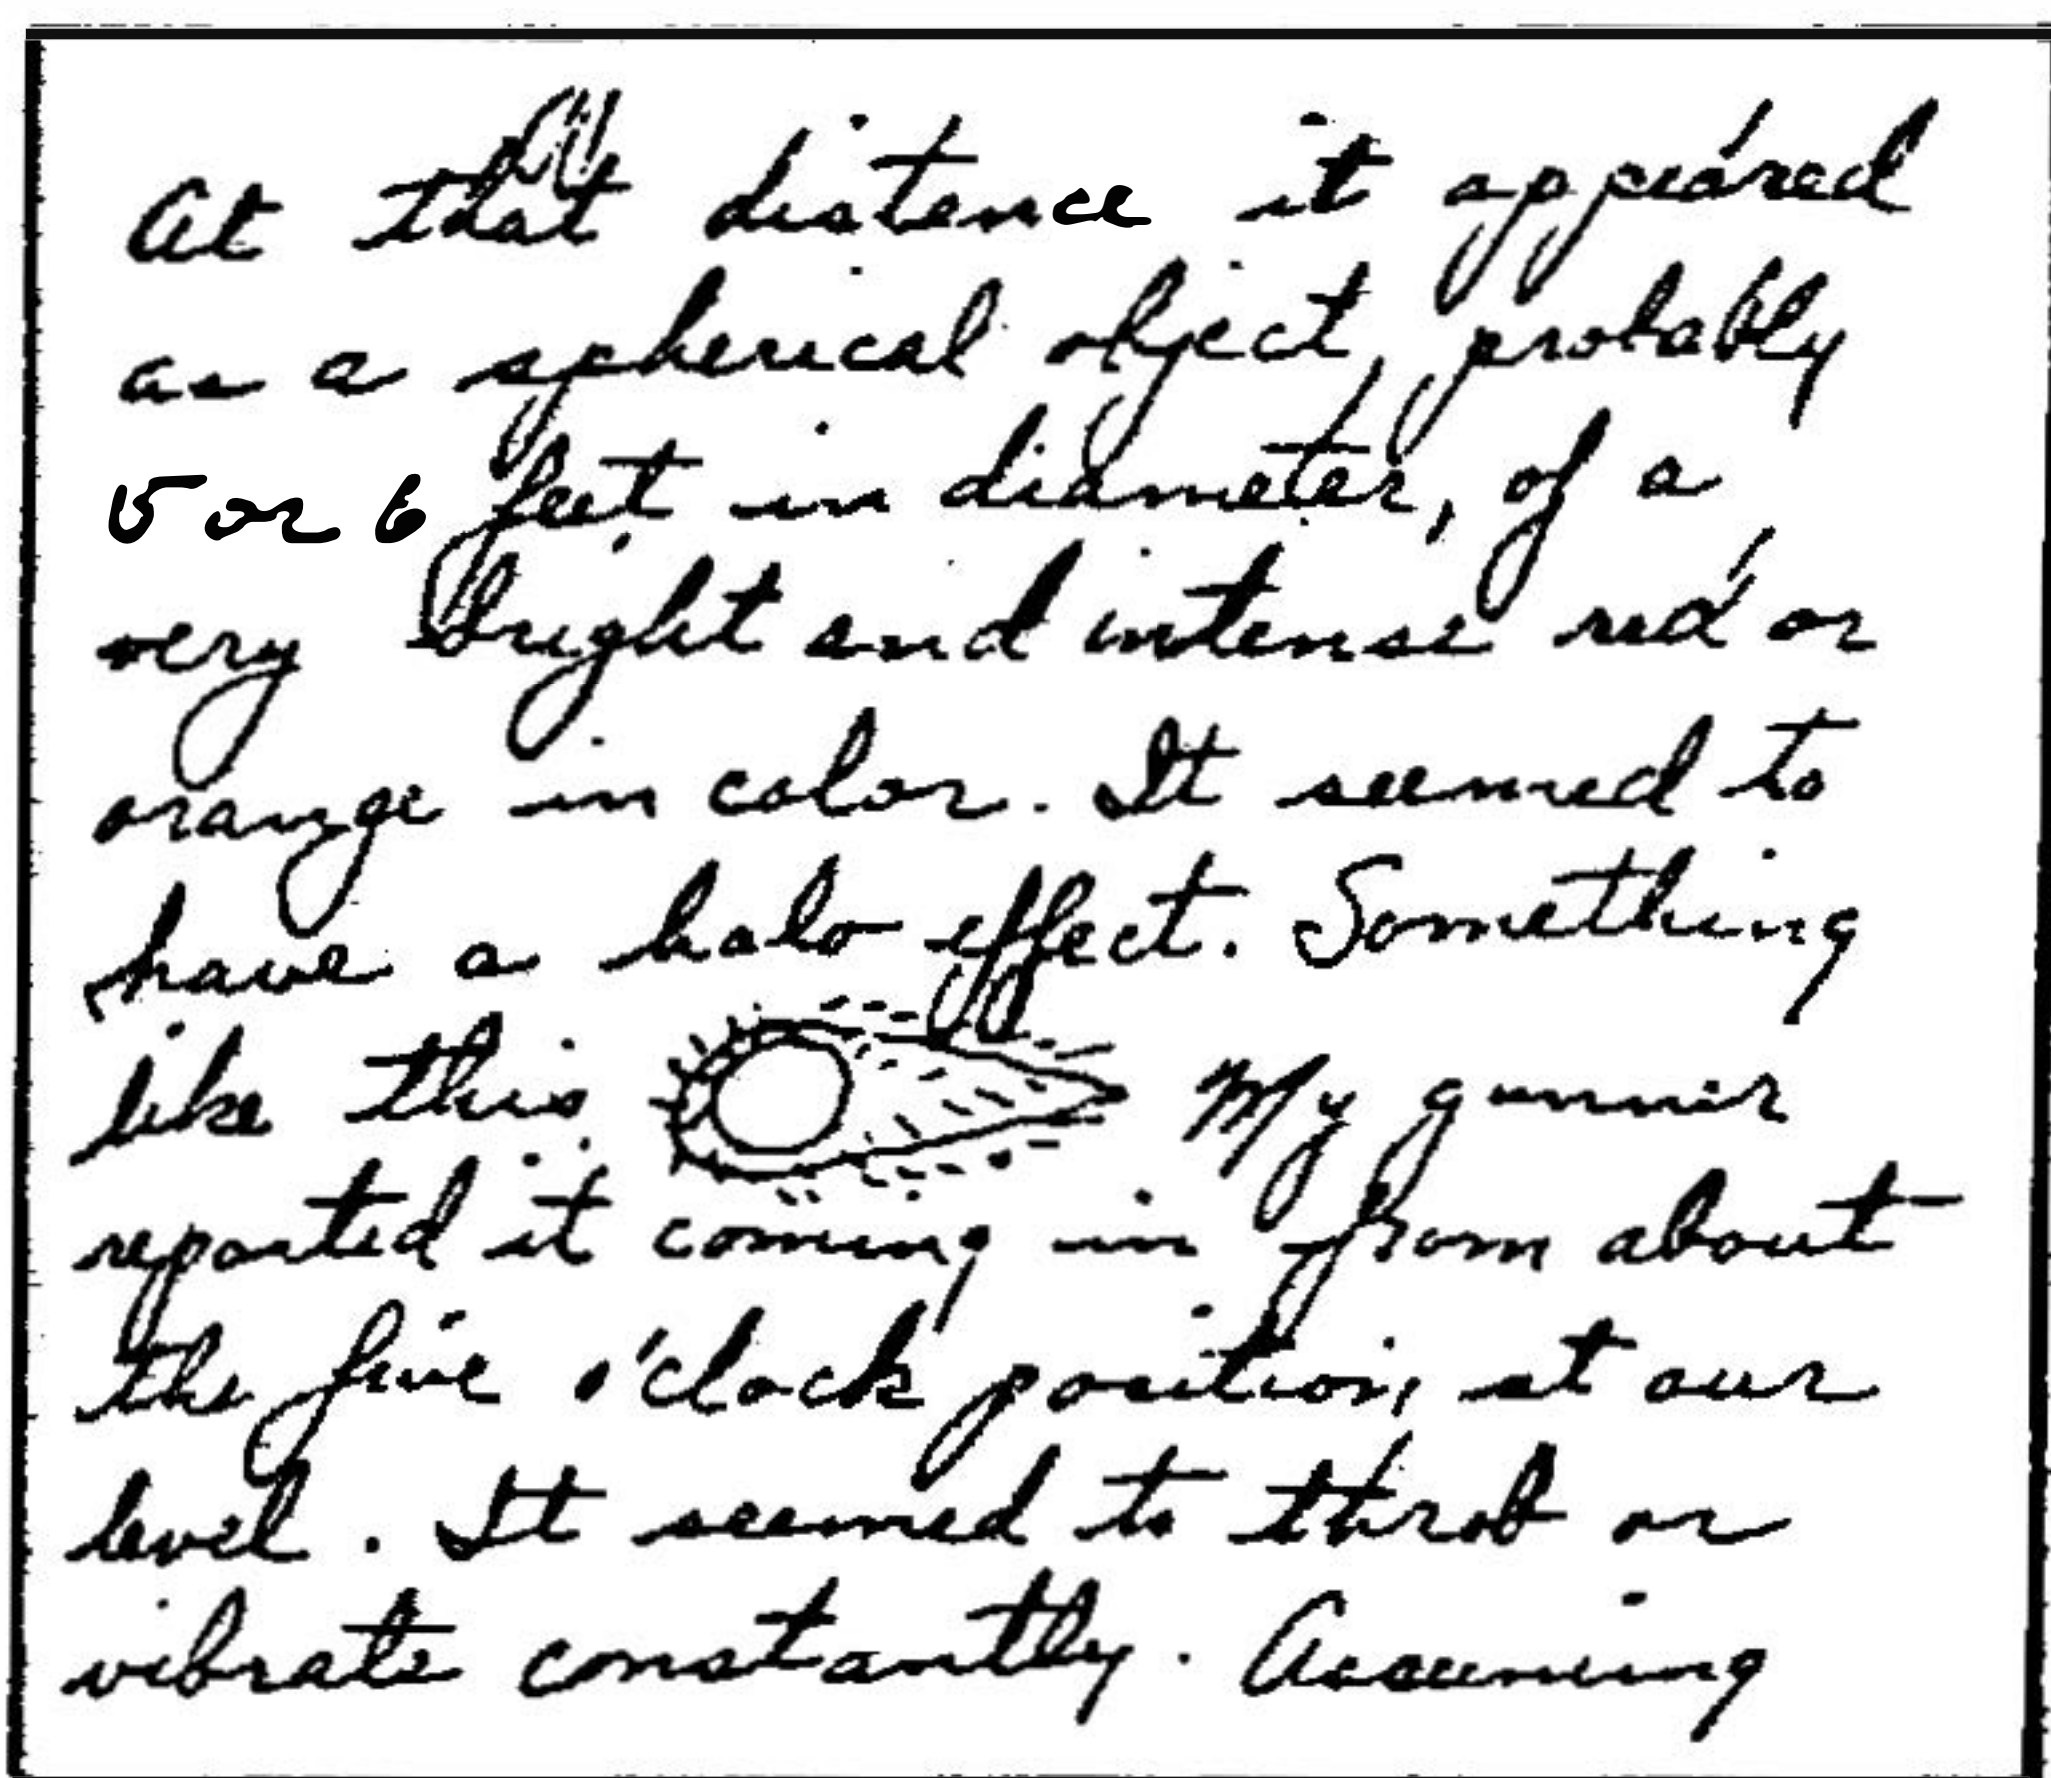 At that distence it appeared
as a spherical object, probably
5 or 6 feet in diameter, of a
very bright and intense red or
orange in color. It seemed to
have a halo effect. Something
like this My gunner
reported it coming in from about
the five o'clock position, at our
level. It seemed to throb or
vibrate constantly. Assuming